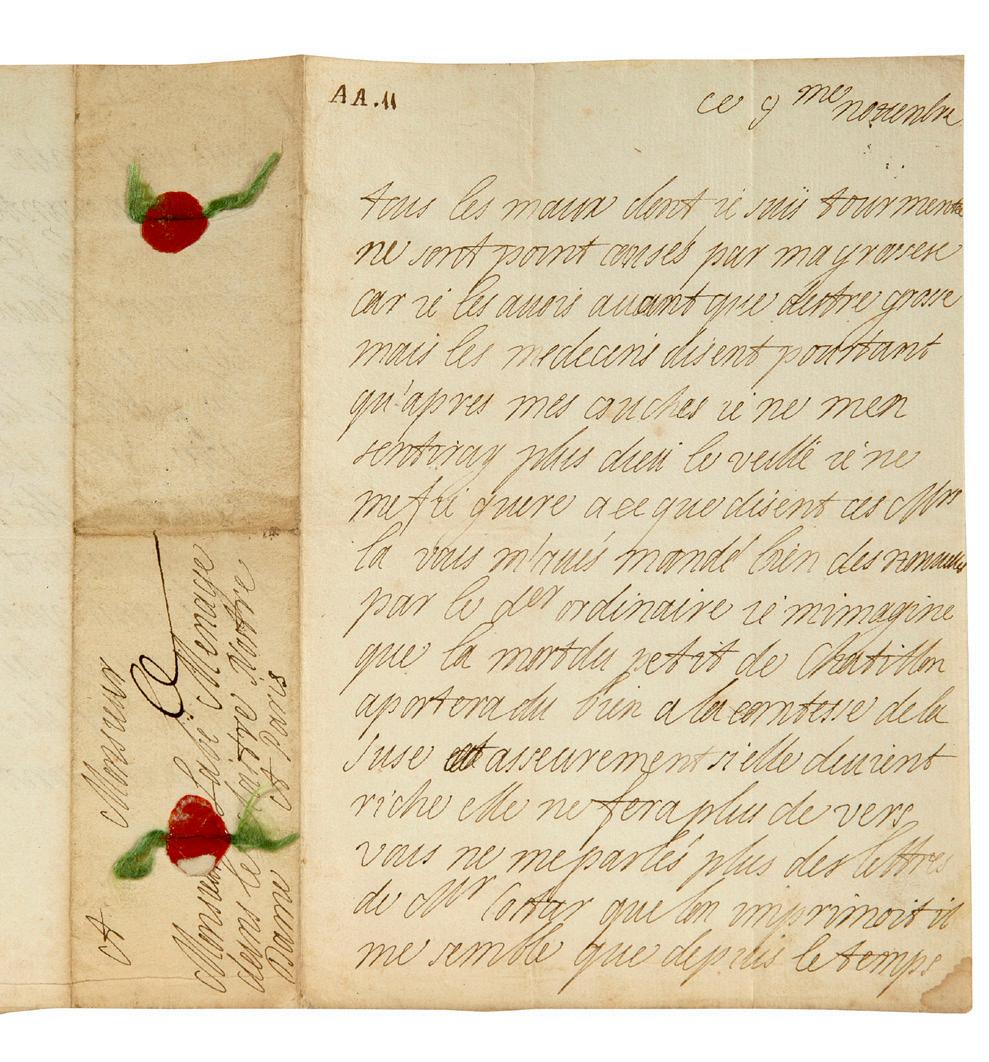 AA.11
ce 9 me novenbre
tous les maux dont ie suis tourmenté
ne sont point causés par ma grossesse
car ie les auois auant que destre grosse
mais les medecins disent pourtant
qu'apres mes couches ie ne men
sentiray plus dieu le veille ie ne
me fie guere a ce que disent ces Mrs
la vous m'aués mandé bien des
par le der ordinaire ie mimagine
que la mort du petit de Chatillon
aportera du bien a la comtesse de la
suse asseurement si elle deuient
riche elle ne fera plus de vers
vous ne me parlés plus des lettres
de Mr Costar que lon imprimoit il
me semble que depuis le temps
A Monsieur
Monsieur Labé Menage
dans le cloitre Nostre
Dame A Paris